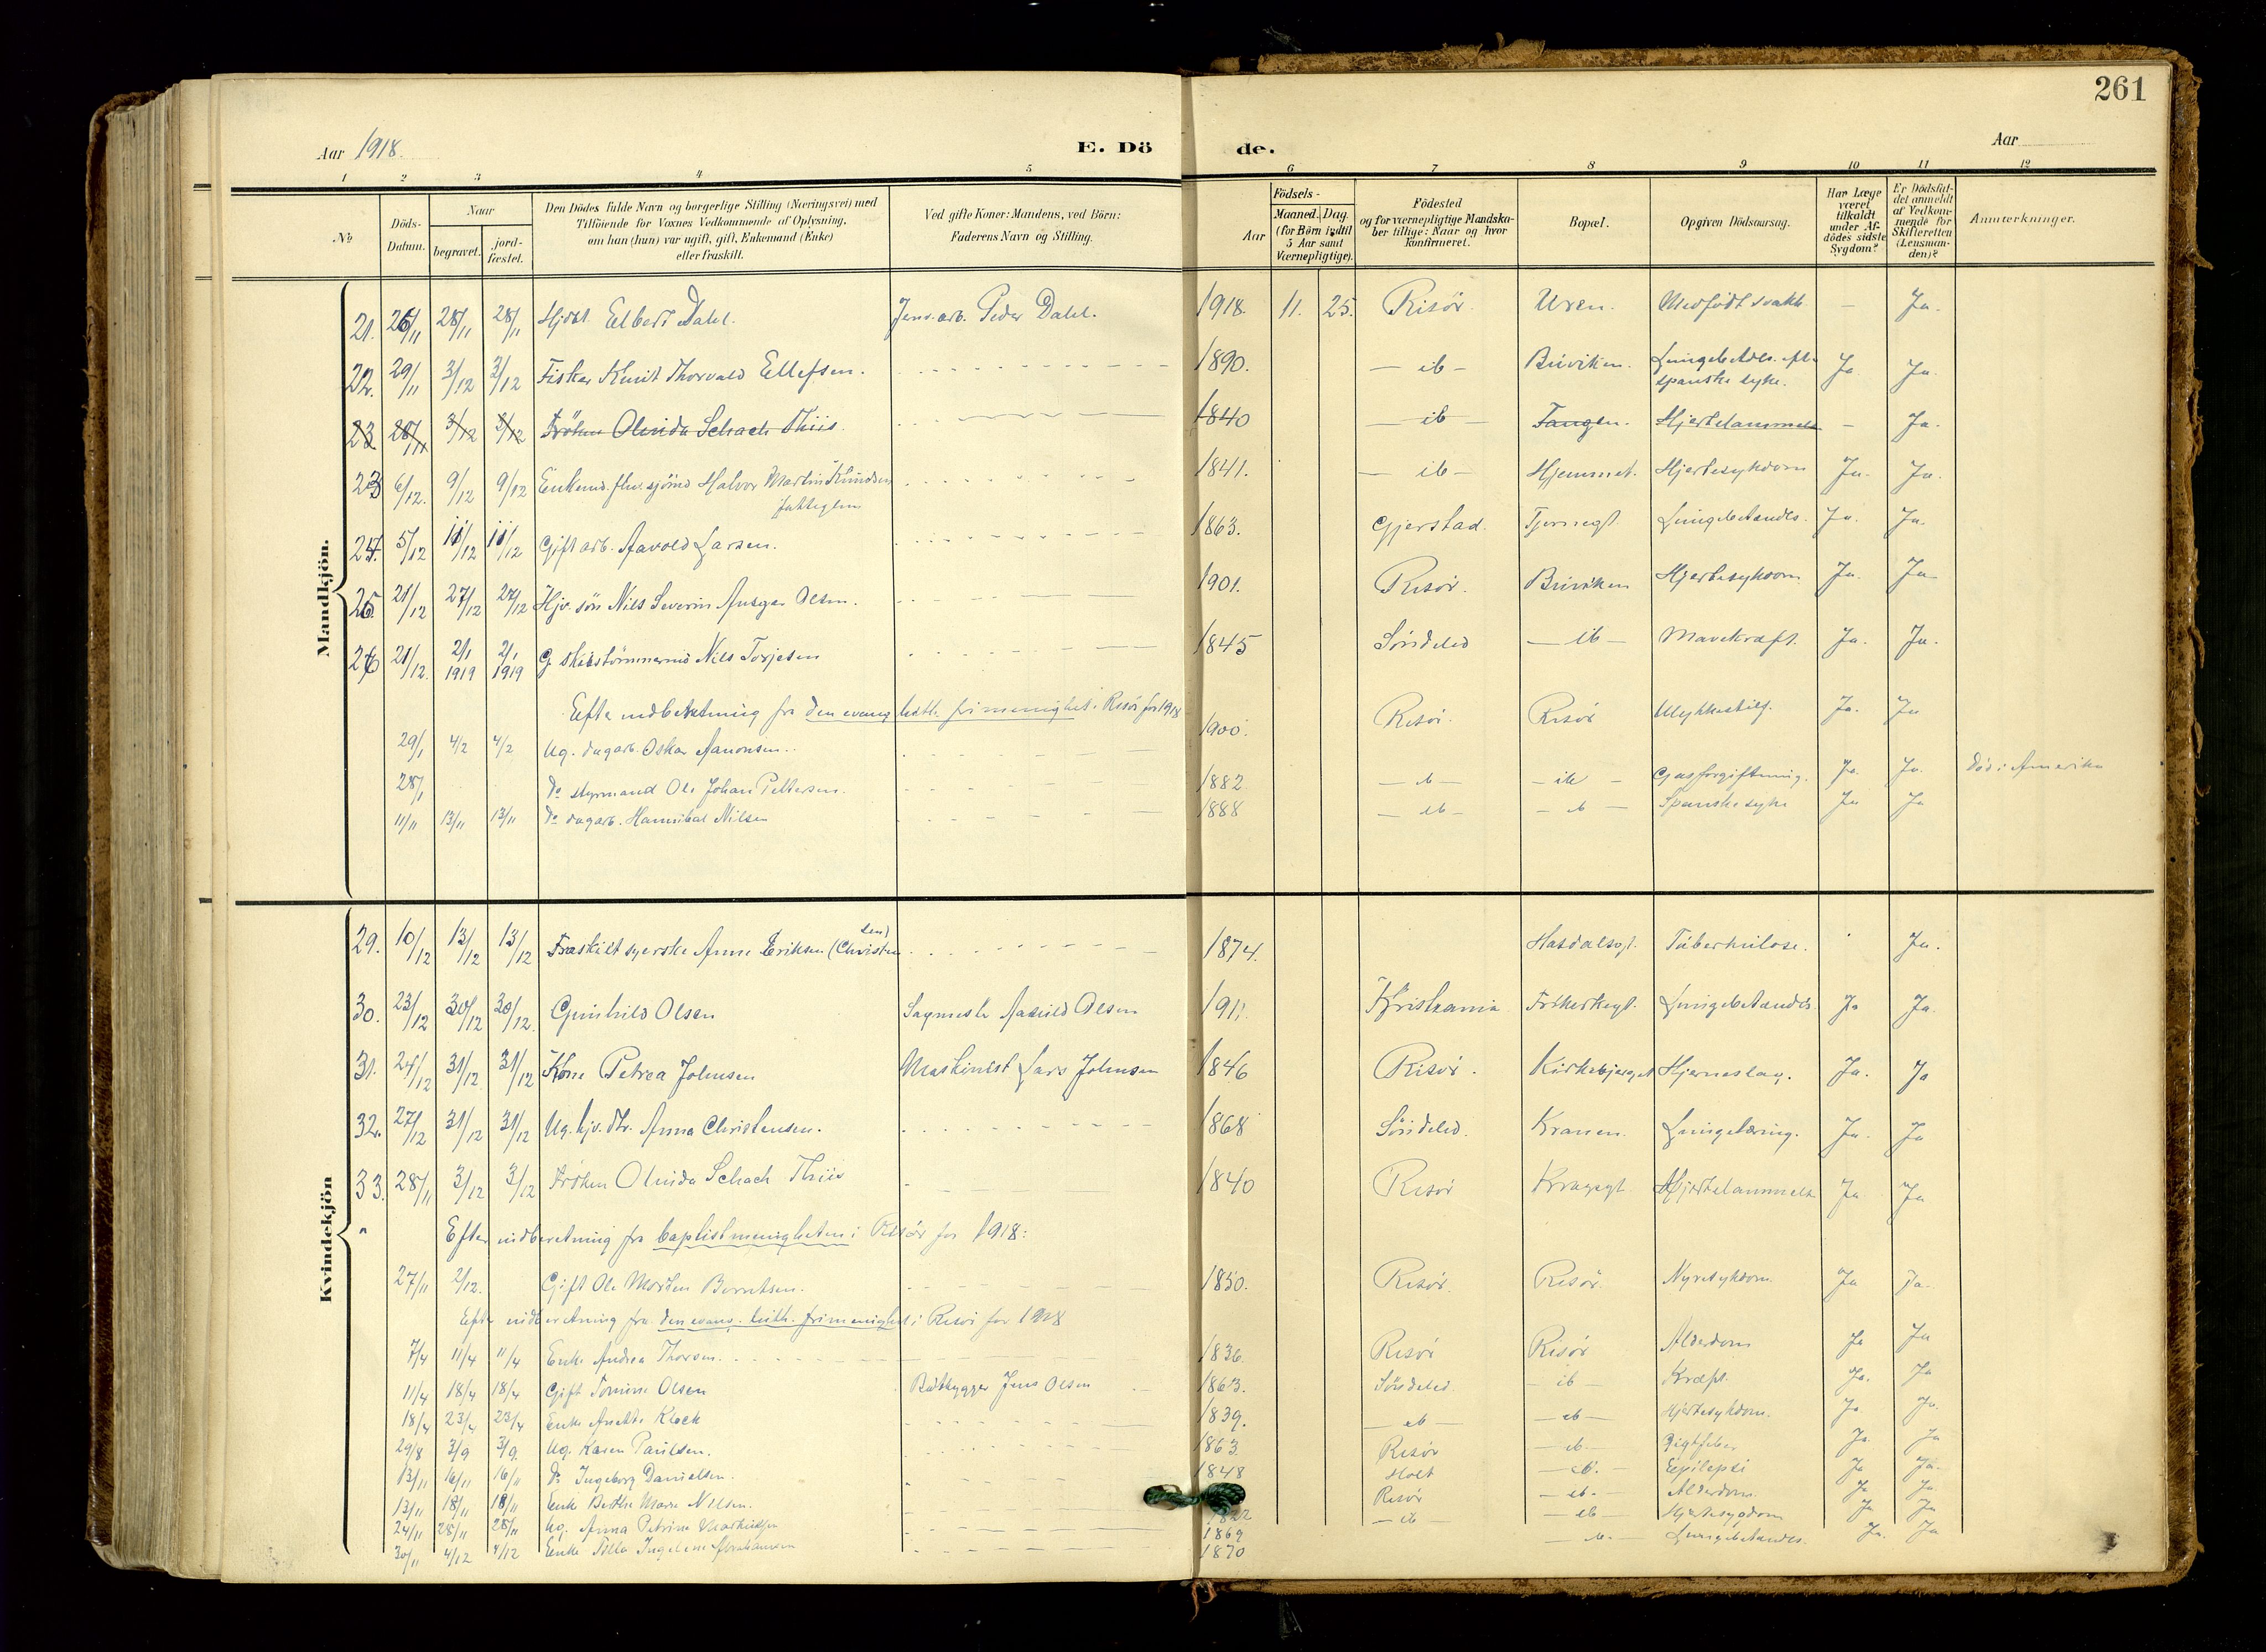 261
Aar 1918. E. Dö de. Aar
1 2 3 4 5 6 7 8 9 10 11 12
No
Döds-Datum.
Naar
begravet.
jord-fæstet.
Den Dödes fulde Navn og borgerlige Stilling (Næringsvei) med
Tilföiende for Voxnes Vedkommende af Oplysning,
om han (hun) var ugift, gift, Enkemand (Enke)
eller fraskilt.
Ved gifte Koner: Mandens, ved Börn:
Faderens Navn og Stilling.
Aar
Födsels-
Maaned. Dag.
(for Börn indtil
5 Aar samt
Værnepligtige).
Födested
og for værnepligtige Mandska-
ber tillige: Naar og hvor
konfirmeret.
Bopæl.
Opgiven Dödsaarsag.
Har Læge
været
tilkaldt
under Af-
dödes sidste
Sygdom?
Er Dödsfal-
det anmeldt
af Vedkom-
mende for
Skifteretten
(Lensman-
den)?
Anmærkninger.
Mandkjön.
21. 26/11 28/11 28/11 Hjdpt. Elbert Dahl. Jernv.arb. Peder Dahl. 1918. 11. 25. Risör. Uren. Medfödt svakh. — Ja.
22. 29/11 3/12 3/12 Fisker Knut Thorvald Ellefsen. 1890. — ib — Buviken. Lungebetdls. eft.
spanske syke. Ja Ja.
23 28/11 3/12 3/12 Fröken Oluida Schach Thiis. 1840 — ib — Tangen. Hjertelammelse — Ja.
23 6/12. 9/12 9/12 Enkemd. fhv. sjömd Halvor Martin Knudsen 1841. — ib — Hjemmet. Hjertesykdom Ja. Ja.
fattiglem
24. 5/12 11/12 11/12 Gift arb. Aavold Larsen. 1863. Gjerstad. Tjernsgt. Lungebetændls. Ja. Ja.
25 21/12 27/12 27/12 Hjv. sön Nils Severin Ansgar Olsen. 1901. Risör. Buviken Hjertesykdom Ja. Ja
26 21/12. 2/1 1919 2/1 1919 G. skibstömmermd Nils Torjesen 1845 Söndeled — ib — Mavekræft. Ja. Ja.
Efter indberetning fra den evang. luth. frimenighet i Risör for 1918
29/1 4/2 4/2 Ug. dagarb. Oskar Aanonsen. 1900. Risör. Risör Ulykkestilf. Ja. Ja
28/1 Do styrmand Ole Johan Pettersen. 1882 — ib — — ib — Gasforgiftning. Ja. Ja. Död i Amerika
11/11 13/11 13/11 Do dagarb. Hannibal Nilsen 1888 — ib — — ib — Spanske syke Ja Ja
Kvindekjön
29. 10/12 13/12 13/12 Fraskilt syerske Anne Eriksen (Christensen) 1874. Hasdalsgt. Tuberkulose. Ja.
30. 23/12 30/12 30/12. Gunhild Olsen Sagmester Olsen 1911. Kristiania Lungebetændls. Ja Ja.
31. 24/12 31/12 31/12 Kone Petrea Johnsen Maskinist Lars Johnsen 1846 Risör. Kirkebjerget Hjerneslag. Ja. Ja
32. 27/12 31/12 31/12 Ug. hjv. dtr. Anna Christensen. 1868 Söndeled. Kranen. Lungetæring. Ja. Ja
33. 28/11 3/12 3/12 Fröken Oluida Schach Thiis 1840 Risör Kragsgt. Hjertelammelse Ja Ja
" Efter indberetning fra baptistmenigheten i Risör for 1918:
27/11 2/12. Gift Ole Morten Berntsen. 1850. Risör. Risör. Nyresykdom. Ja Ja.
Efter indberetning fra den evang. luth. frimenighet i Risör for 1918
7/4 11/4 11/4 Enke Andrea Thorsen. 1836. Risör Risör Alderdom Ja Ja
11/4 18/4 18/4 Gift Tomine Olsen Baatbygger Jens Olsen 1863. Söndeled. — ib — Kræft. Ja. Ja
18/4 23/4 23/4 Enke Anette Klock 1839. — ib — — ib — Hjertesykdom. Ja Ja.
29/8 3/9 3/9. Ug. Karen Paulsen. 1863 Risör — ib — Gigtfeber Ja. Ja
13/11 16/11 16/11 Do Ingeborg Danielsen. 1848 Holt — ib. — Epilepsi Ja Ja.
13/11 18/11 18/11 Enke Berthe Marie Nilsen. 1822 Risör — ib. — Alderdom. Ja Ja.
24/11 28/11 28/11 Ug. Anna Petrine 1869 — ib — — ib — Hjertesygdom Ja Ja
30/11 4/12 4/12 Enke Tilla Ingeline Abrahamsen 1870 — ib. — Lungebetændls. Ja. Ja